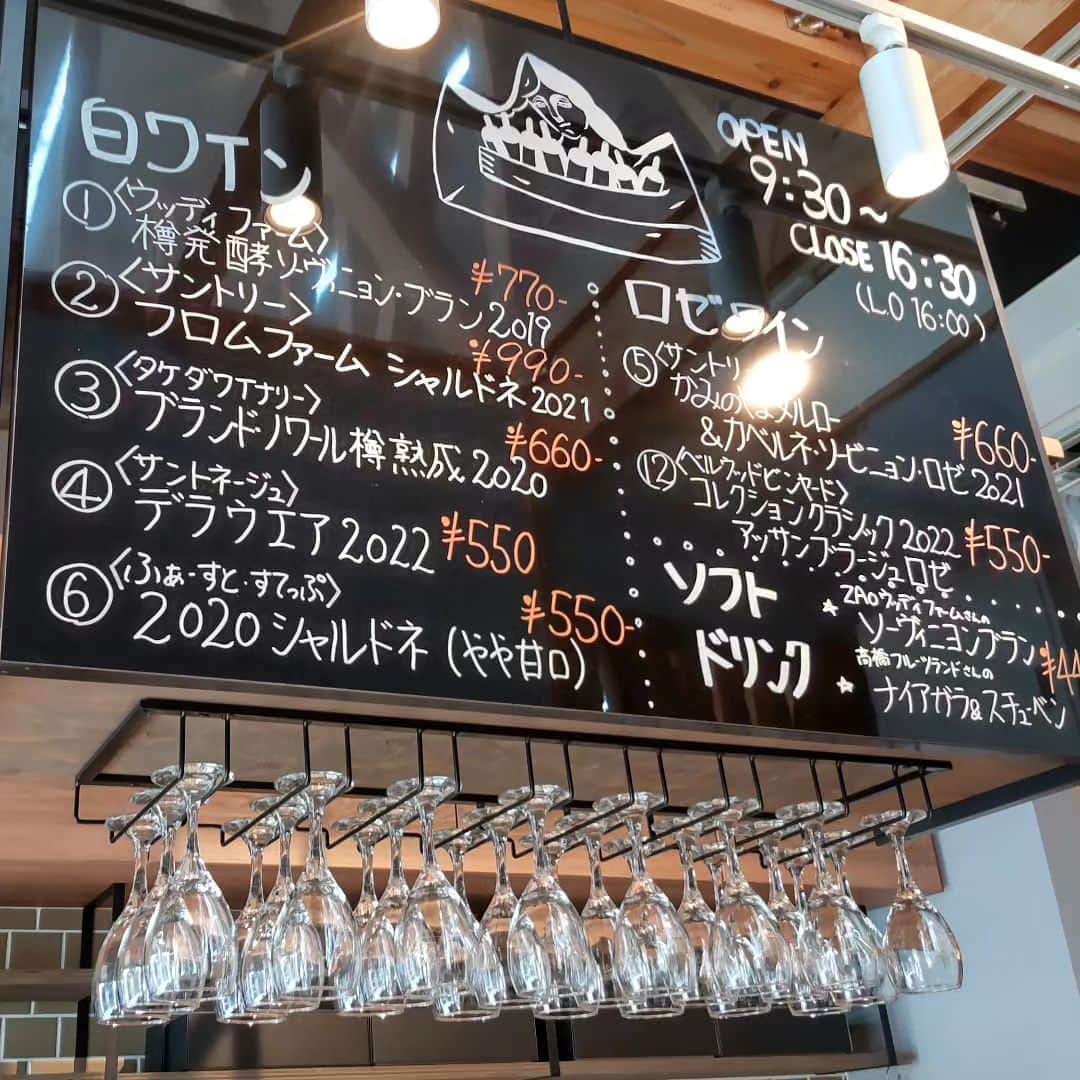 白ワイン
① <ウッディファーム>
樽発酵ソーヴィニョン・ブラン2019
¥770-
② <サントリー>
フロムファーム シャルドネ2021
¥990-
③ <タケダワイナリー>
ブランドノワール樽熟成2020
¥660-
④ <サントネージュ>
デラウエア2022 ¥550
⑥ <ふぁーすと・すてっぷ>
2020シャルドネ(やや甘口)
¥550-
OPEN
9:30~
CLOSE 16:30
(L.O 16:00)
ロゼワイン
⑤ <サントリ
メルロー
&カベルネ・ソービニョン・ロゼ2021
¥660-
⑫ <ベルウッドビンヤード>
コレクションクラシック2022
アッサンブラージュロゼ
¥550-
ソフト
ドリンク
★ ZAOウッディファームさんの
ソーヴィニヨンブラン
高橋フルーツランドさんの
★ ナイアガラ&スチューベン